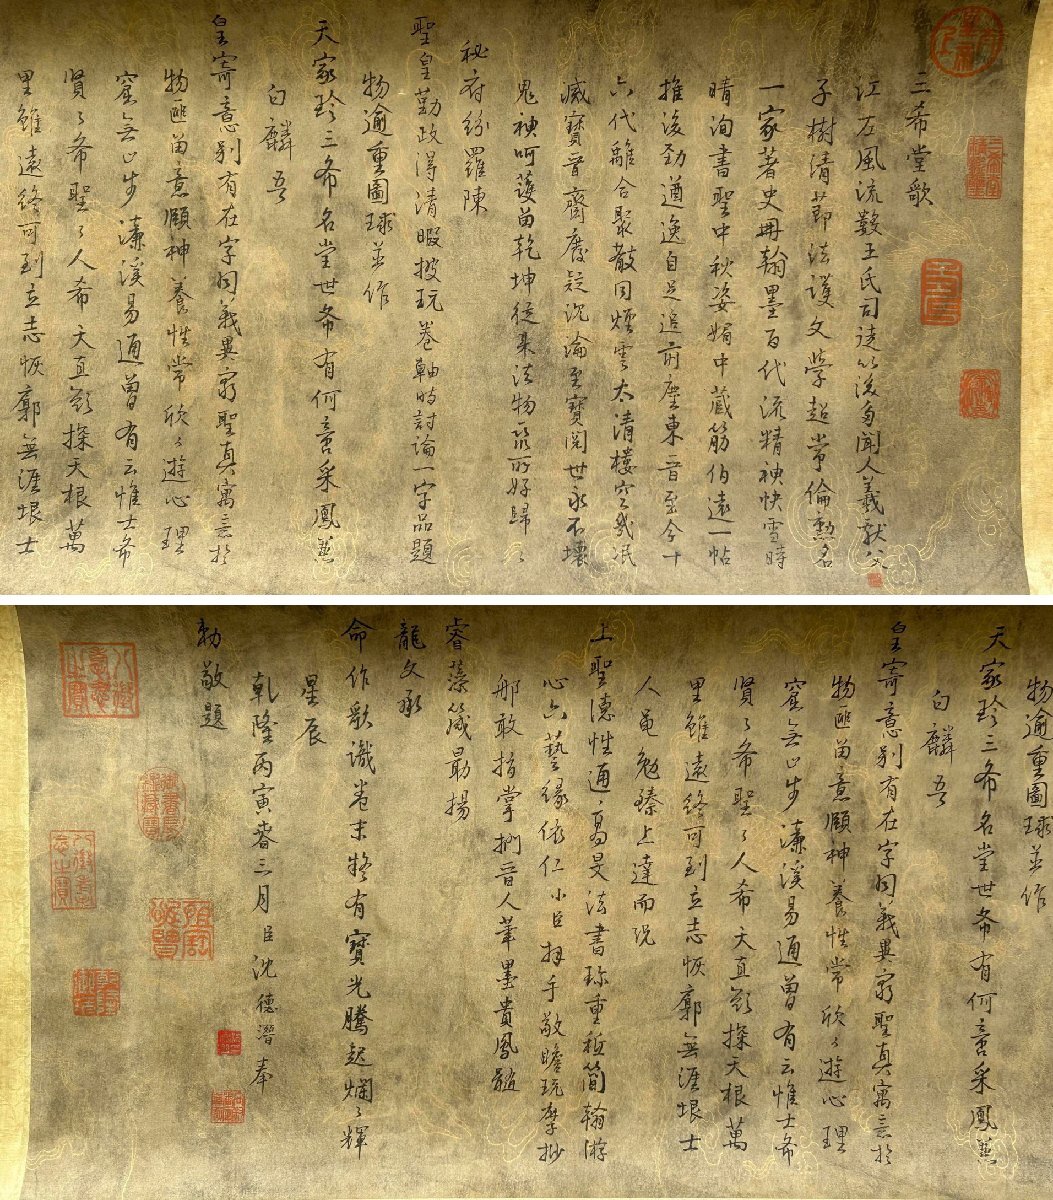 三希堂歌
江左風流數王氏司徒以後多聞人羲獻父
子樹清節法護文學超常倫勲名
一家著史冊翰墨百代流精神快雪時
晴洵書聖中秋姿媚中藏筋伯遠一帖
推後勁遒逸自足追前塵東晉至今十
六代離合聚散同煙雲太清樓空幾泯
滅寳晉齋廢疑沉淪至寳閱世永不壞
鬼神呵護留乾坤從來法物聚所好歸之
秘府紛羅陳
聖皇勤政得清暇披玩卷軸時討論一字品題
物逾重圖球並作
天家珍三希名堂世希有何啻采鳳兼
白麟吾
皇寄意別有在字同義異窮聖真寓言於
物匪留意頤神養性常欣々遊心理
窟無止步濂溪易通曽有云惟士希
賢々希聖々人希天直欲探天根萬
里雖遠終可到立志恢廓無涯垠士
太上皇帝
三希堂精鑑璽
物逾重圖球並作
天家珍三希名堂世希有何啻采鳳兼
白麟吾
皇寄意別有在字同義異窮聖真寓言於
物匪留意頤神養性常欣々遊心理
窟無止步濂溪易通曽有云惟士希
賢々希聖々人希天直欲探天根萬
里雖遠終可到立志恢廓無涯垠士
人黽勉臻上達而況
上聖德性通高旻法書珍重祗簡翰游
心六藝緣依仁小臣拜手敬瞻玩摩抄
那敢指掌捫晉人筆墨貴鳳髓
睿藻箴勗揚
龍文承
命作歌識卷末擬有寳光騰起爛々輝
星辰
乾隆丙寅春三月臣沈德潛奉
勅敬題
八徵耄念之寶